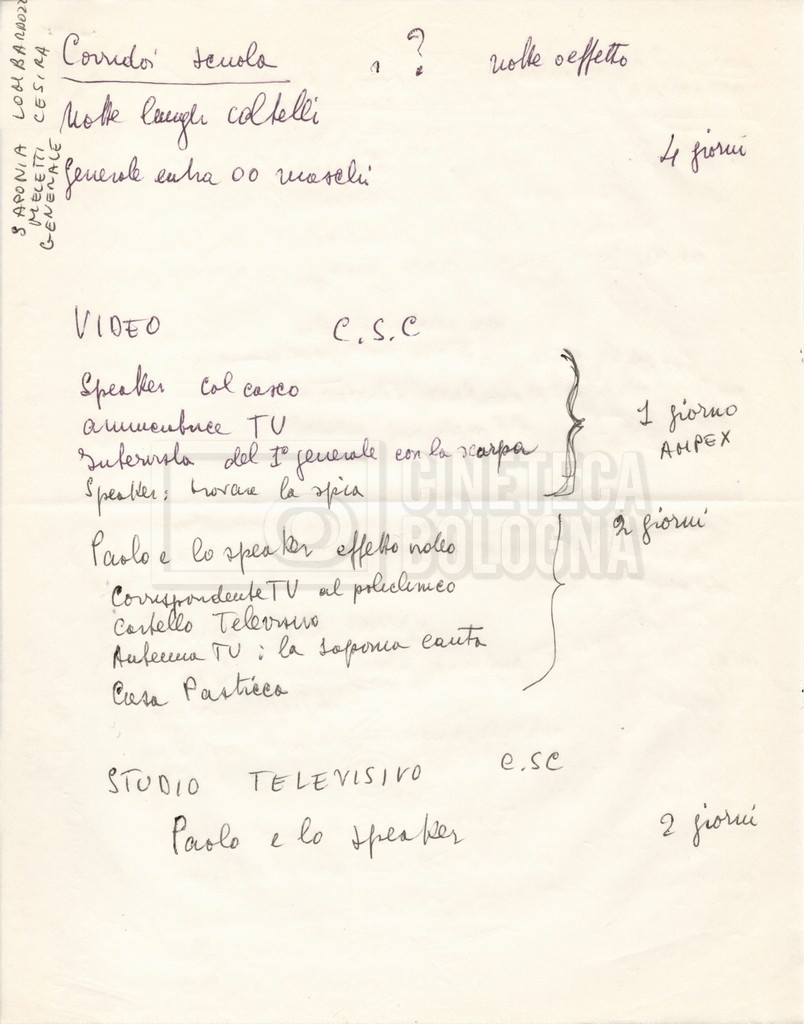 SAPONIA LOMBARDOZZI
MELETTI CESIRA
GENERALE
Corridoi scuola , ? notte effetto
Notte lunghi coltelli
4 giorni
Generale entra 00 maschi
VIDEO C.S.C
Speaker col casco
annunciatrice TV
1 giorno
AMPEX
Intervista del I° generale con la scarpa
Speaker: trovare la spia
2 giorni
Paolo e lo speaker effetto video
Corrispondente TV al policlinico
Cartello Televisivo
Antenna TV: la saponia canta
Casa Pasticca
STUDIO TELEVISIVO C.SC
Paolo e lo speaker 2 giorni
CINETECA
BOLOGNA